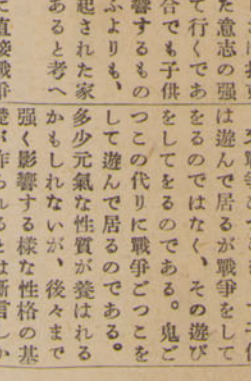 た意志の强
て行くであ
合でも子供
響するもの
ふよりも、
起された家
あると考へ
に直接戰爭
は遊んで居るが戰爭をして
をるのではなく、その遊び
をしてをるのである。鬼ご
つこの代りに戰爭ごつこを
して遊んで居るのである。
多少元氣な性質が養はれる
かもしれないが、後々まで
强く影響する樣な性格の基
礎が作られるとは斷言しか